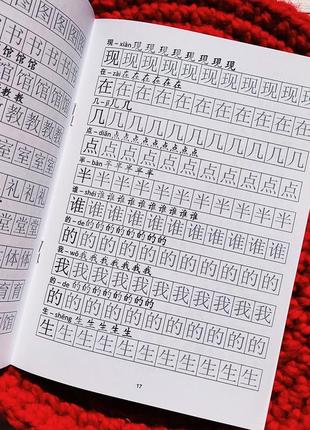 图图图
书书书
馆馆馆
馆馆馆
教教教
教教教
室室室
礼礼
堂堂
体体
育育
馆馆
现 – xiàn 现现现现现现现
现现现现现现现现
在 – zài 在在在在在在在
在在在在在在在在
几 – jǐ 几几
几几几几几几几几
点 – diǎn 点点点点点点点点
点点点点点点点点
半 – bàn 半半半半半
半半半半半半半半
谁 – shéi 谁谁谁谁谁谁谁谁谁
谁谁谁谁谁谁谁谁
的 – de 的的的的的的的的
的的的的的的的的
我 – wǒ 我我我我我我我
我我我我我我我我
的 – de 的的的的的的的的
的的的的的的的的
生 – shēng 生生生生生
生生生生生生生生
17